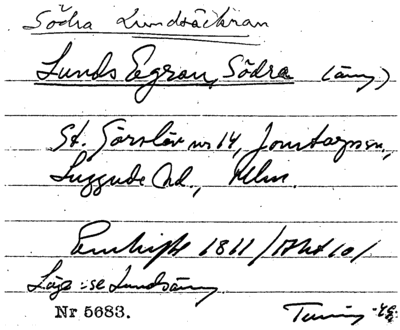 Södra Lundsäckran
Lunds Egran, Södra (äng)
St. Görslöv nr 14, Jonstorps sn.,
Luggude hd., Mlm.
Enskifte 1811 /Akt 10/
Läge: se Lundsäng.
Nr 5683.